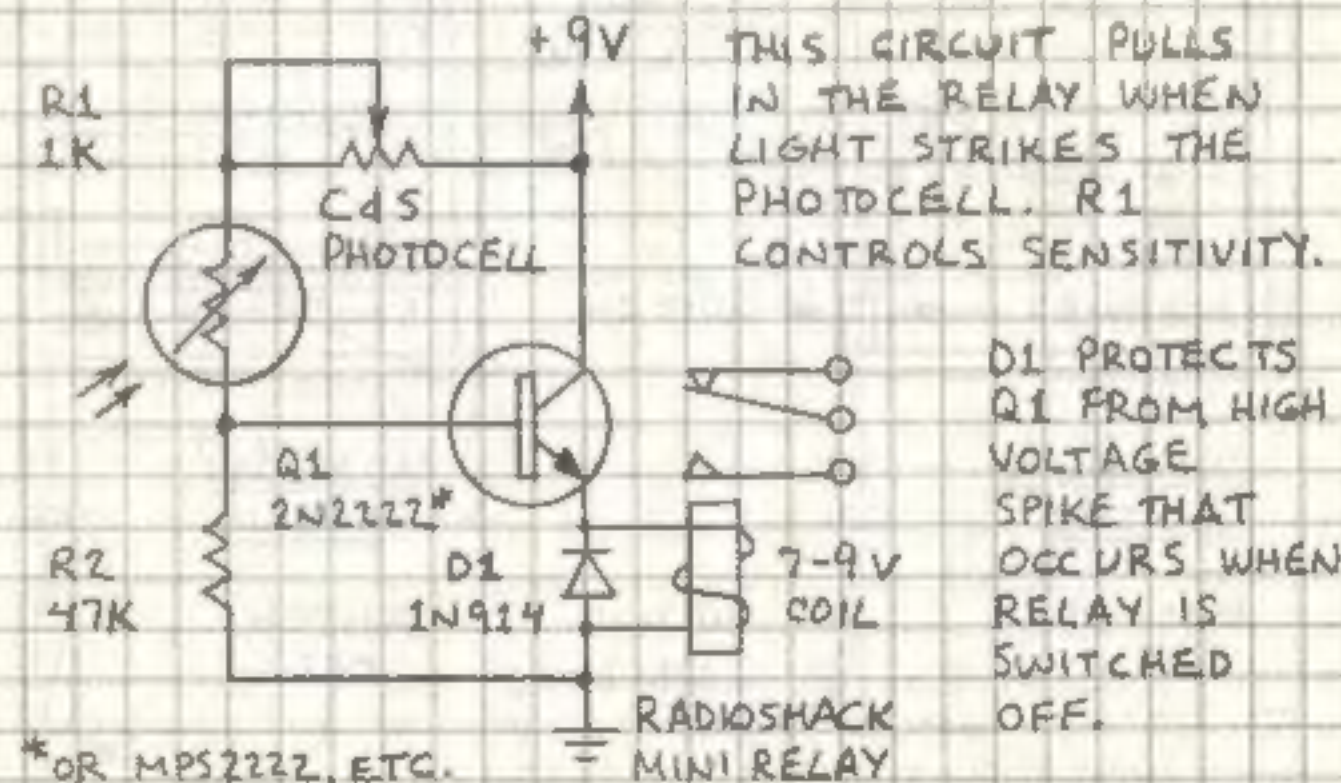 +9V
R1
1K
CdS
PHOTOCELL
THIS CIRCUIT PULLS
IN THE RELAY WHEN
LIGHT STRIKES THE
PHOTOCELL. R1
CONTROLS SENSITIVITY.
Q1
2N2222*
R2
47K
D1
1N914
7-9V
COIL
D1 PROTECTS
Q1 FROM HIGH
VOLTAGE
SPIKE THAT
OCCURS WHEN
RELAY IS
SWITCHED
OFF.
RADIOSHACK
MINI RELAY
*OR MPS2222, ETC.